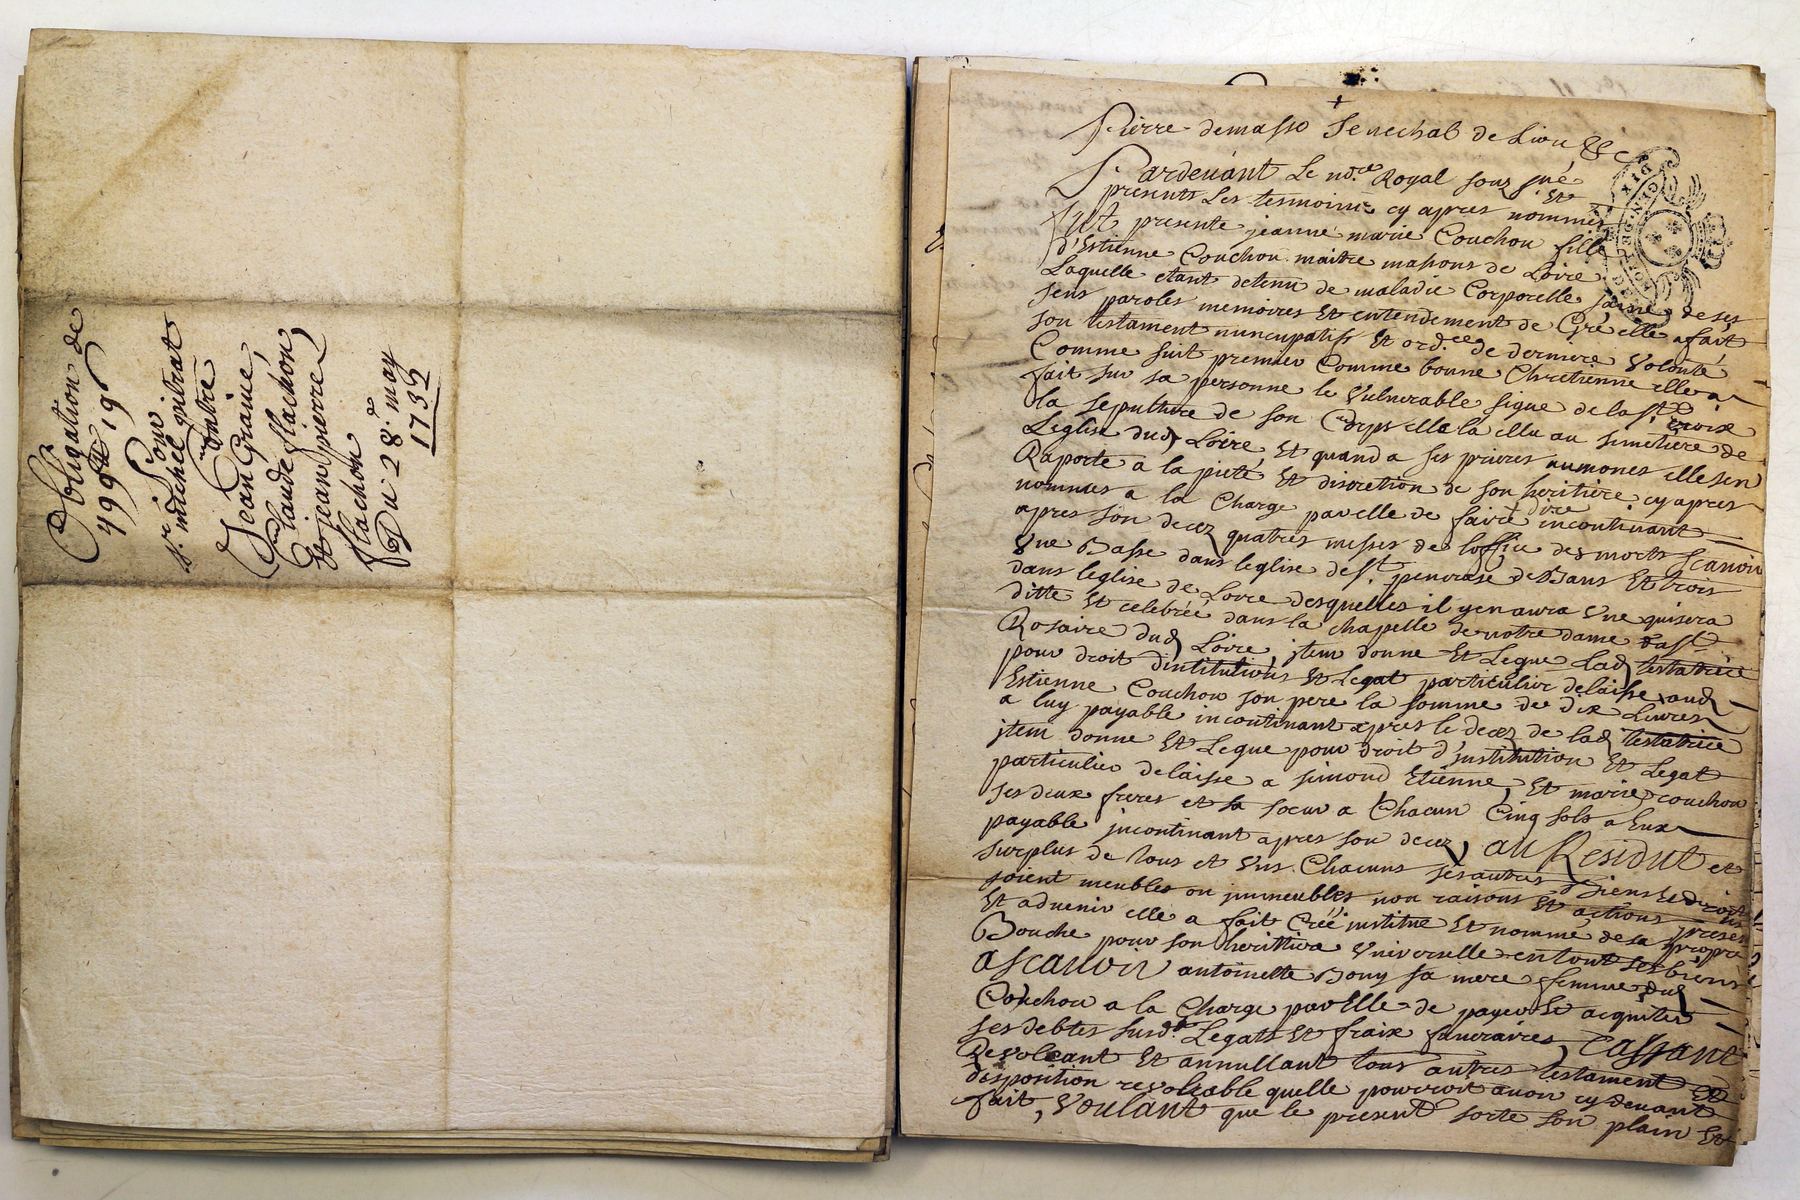 Obligation de
499 ₶ 19 s
Pour
Sr. michel pitrat
Contre
Jean Graine,
Claude flachon
Et jean pierre
flachon
Du 28.e may
1732
Pierre demasso Senechal de Lion &c
Pardeuant Le no.re Royal souz.sné Et
presents Les tesmoins cy apres nommés
fut presente jeanne marie Couchou fille
d'Estienne Couchou maitre massons de Loire
Laquelle etant detenu de maladie Corporelle saine de ses
sens paroles memoires Et entendement de Gré elle a fait
son testament nuncupatif Et ord.ce de derniere Volonté
Comme suit premier Comme bonne Chretienne elle a
fait sur sa personne le Vulnerable signe de la s.te croix
La sepulture de son Corps elle la ellu au simetiere de
L'eglise dud. Loire, Et quand a ses prieres aumones elle sen
Raporte a la pieté Et discretion de son heritiere cy apres
nommés a la Charge par elle de faire dire incontinant
apres son decez quatres messes de loffice des morts scauoir
Vne Basse dans leglise de st. Et trois
dans leglise de Loire desquelles il yen aura Vne qui sera
ditte Et celebréé dans la chapelle de notre dame
Rosaire dud. Loire, jtem donne Et Legue Lad. testatrice
pour droit dinstitutions Et Legat particulier delaisse aud.
Estienne Couchou son pere la somme de dix Livres
a luy payable incontinant apres le decez de lad. testatrice
jtem donne Et Legue pour droit d'institution Et Legat
particulier delaisse a simond Etienne, Et marie couchou
ses deux freres et sa soeur a Chacun Cinq sols a Eux
payable jncontinant apres son decez, au Residut et
surplus de tous et Vns Chacuns ses autres Biens Et droits
soient meubles ou jmmeubles non raisons Et actions presens
Et aduenir elle a fait Créé institue Et nomme de sa propre
Bouche pour son herittiere Vniverselle en tout ses biens
a scauoir antoinette Bony sa mere femme dud.
Couchou a la Charge par Elle de payer Et acquiter
ses debtes surd.ts Legats Et fraix funeraires, Cassant
Reuoleant Et annullant tous autres testament Et
disposition revoleable quelle pourroit auoir cy deuant
fait, Voulant que le present sorte son plain Et